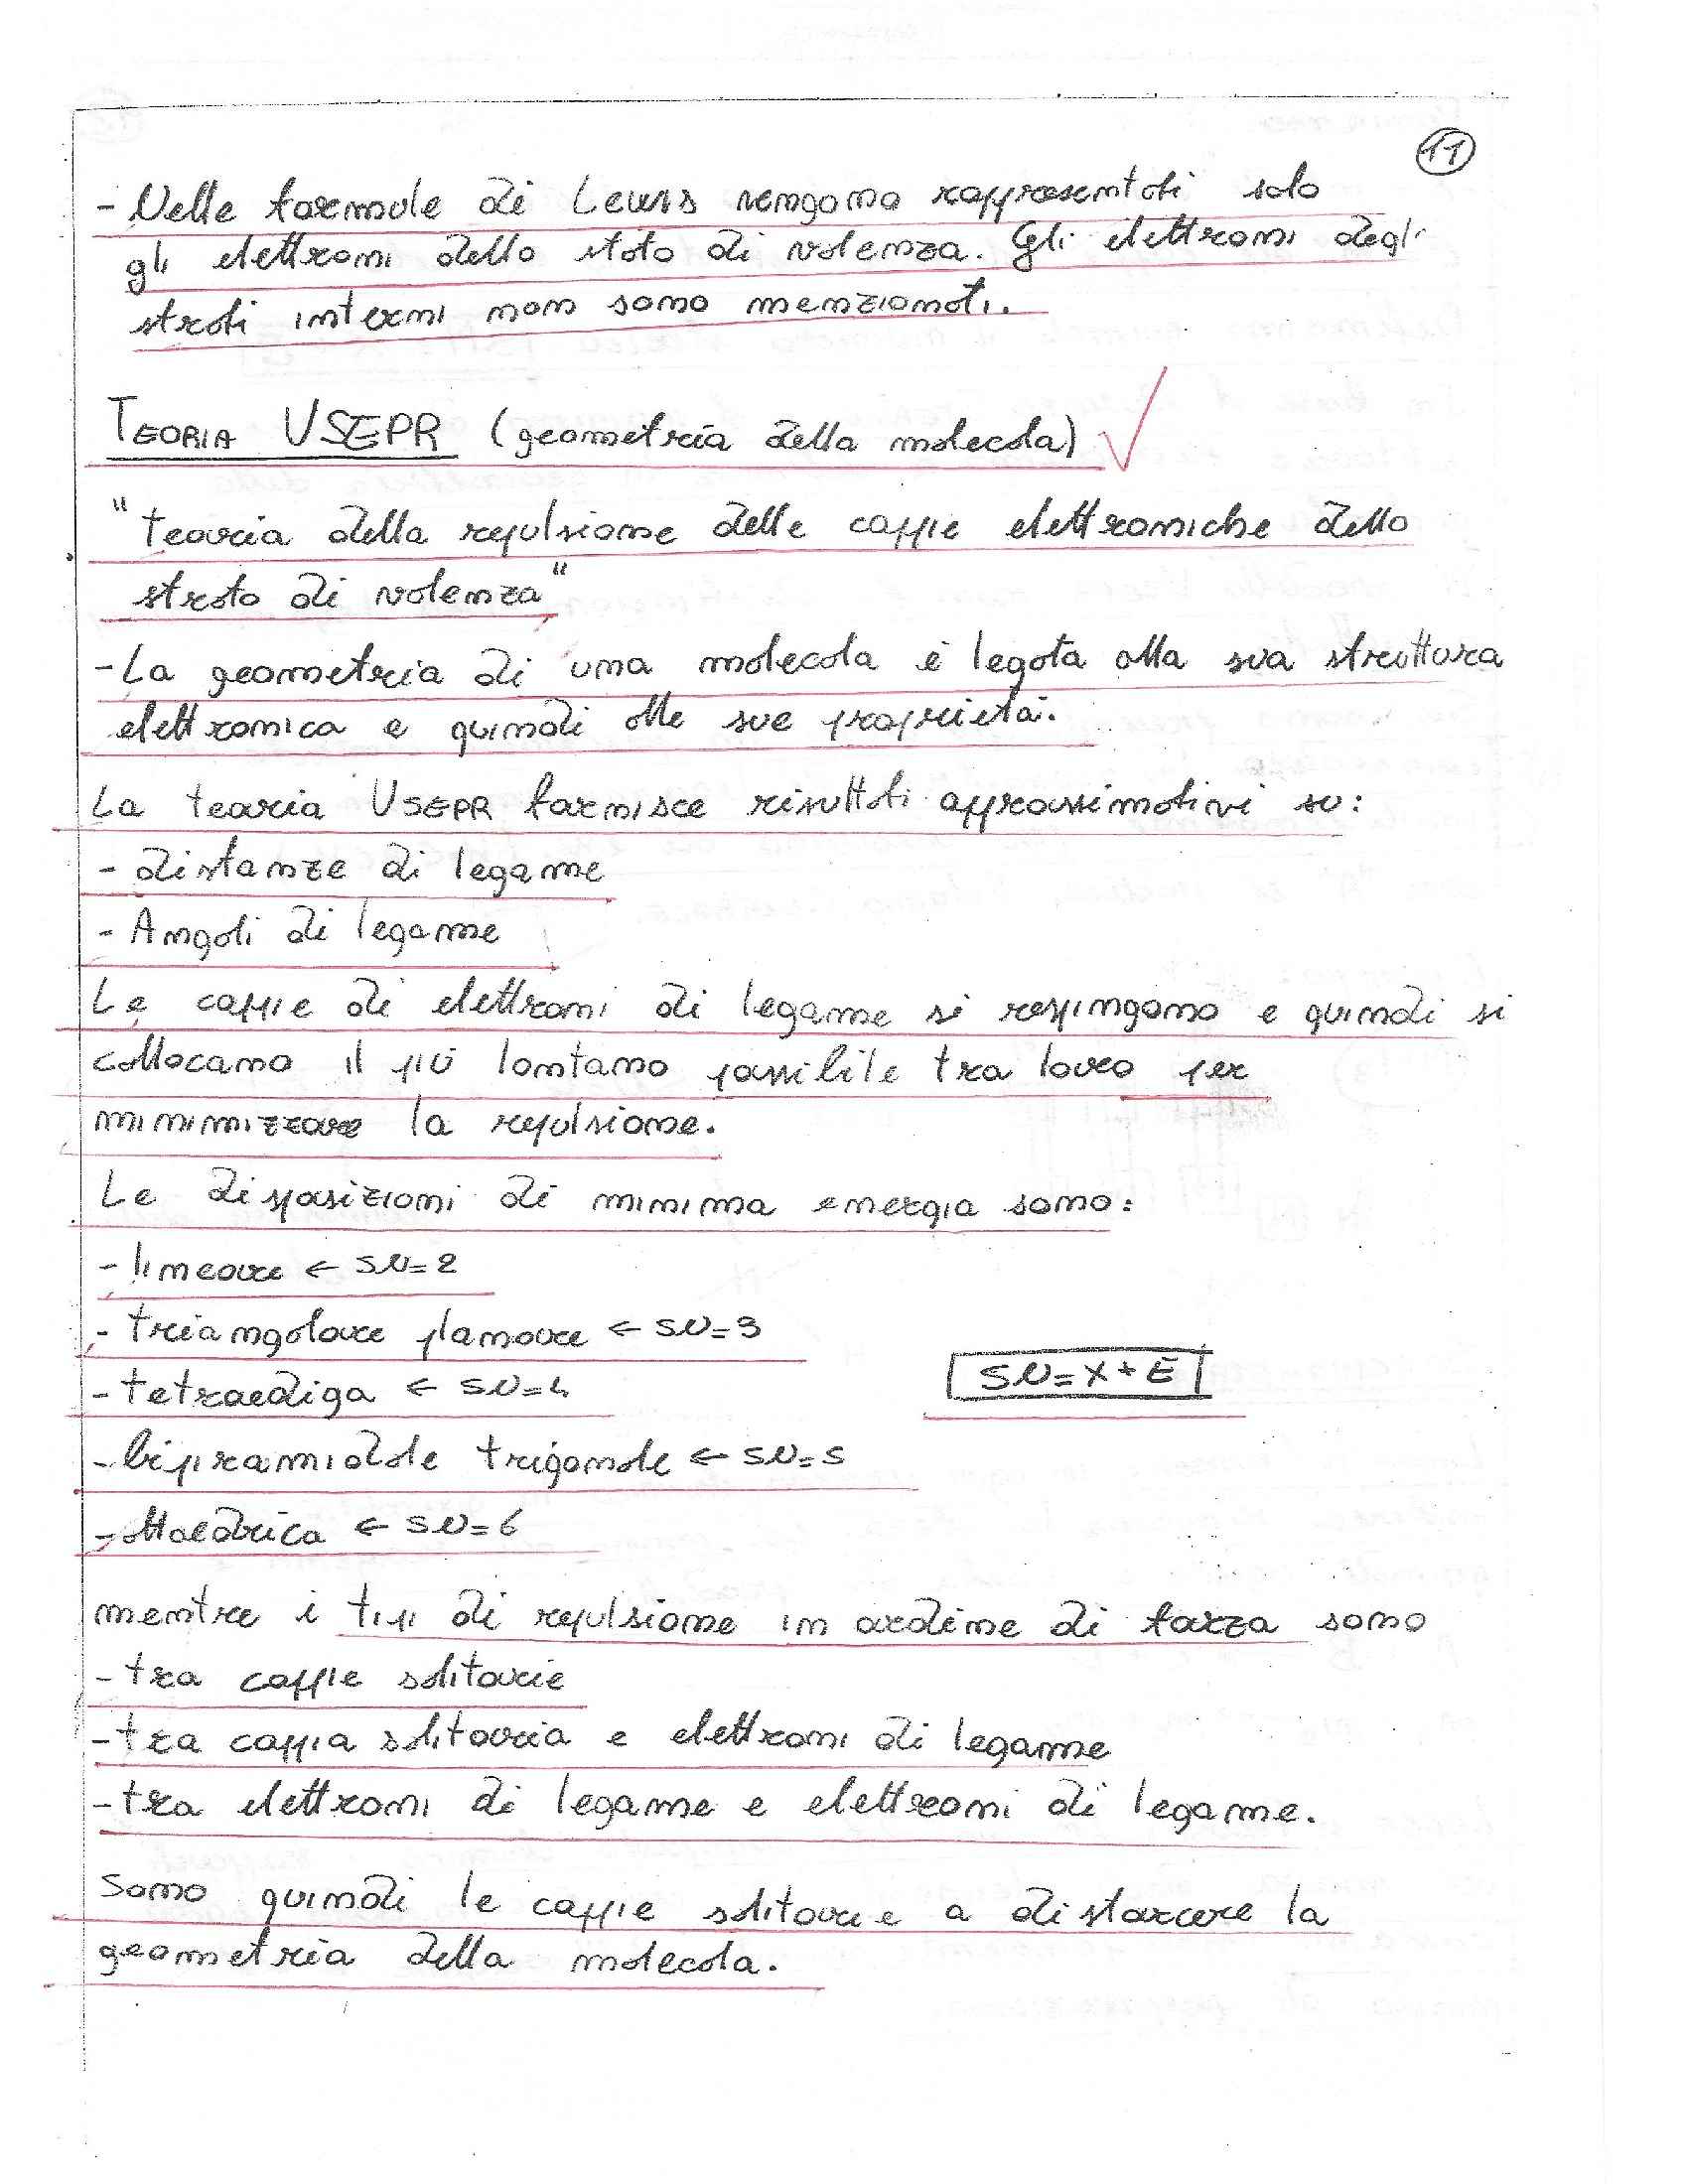 11
- Nelle formule di Lewis vengono rappresentati solo
gli elettroni dello stato di valenza. Gli elettroni degli
strati interni non sono menzionati.
TEORIA VSEPR (geometria della molecola)
"teoria della repulsione delle coppie elettroniche dello
strato di valenza"
- La geometria di una molecola è legata alla sua struttura
elettronica e quindi alle sue proprietà.
La teoria VSEPR fornisce risultati approssimativi su:
- distanze di legame
- Angoli di legame
Le coppie di elettroni di legame si respingono e quindi si
collocano il più lontano possibile tra loro per
minimizzare la repulsione.
Le disposizioni di minima energia sono:
- lineare ← SN=2
- triangolare planare ← SN=3
- tetraediga ← SN=4
SN=X+E
- bipiramidale trigonale ← SN=5
- ottaedrica ← SN=6
mentre i tipi di repulsione in ordine di forza sono
- tra coppie solitarie
- tra coppia solitaria e elettroni di legame
- tra elettroni di legame e elettroni di legame.
Sono quindi le coppie solitarie a distorcere la
geometria della molecola.